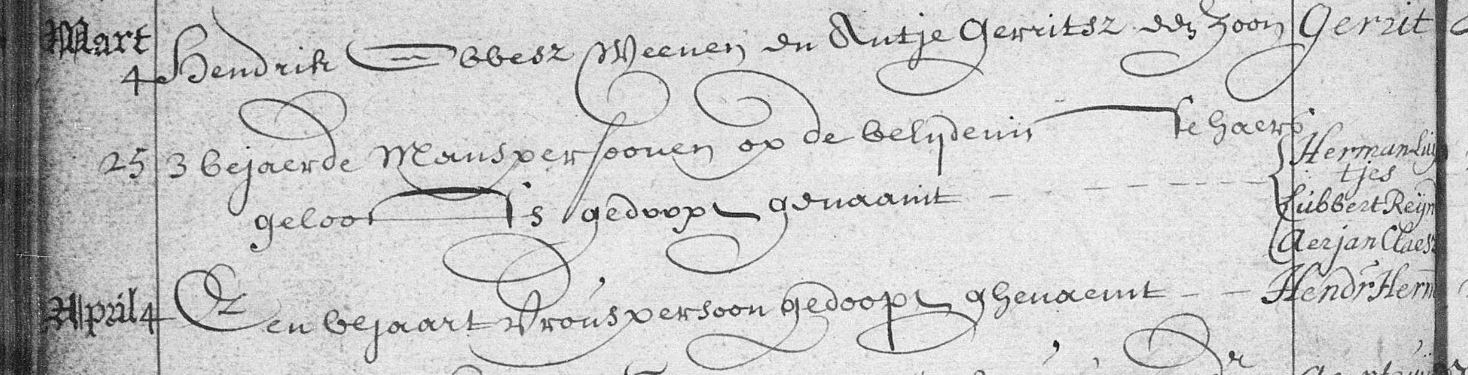 Mart
4 Hendrik Ebbesz Weener en Antje Gerritsz een zoon Gerrit
25 3 bejaerde Manspersoonen op de belijdenis haers
Herman Luij
tjes
geloofs gedoopt genaamt
Lubbert Reijn
Aerjan Claesz
April 4 Een bejaart Vrouspersoon gedoopt ghenaemt Hendr Herm